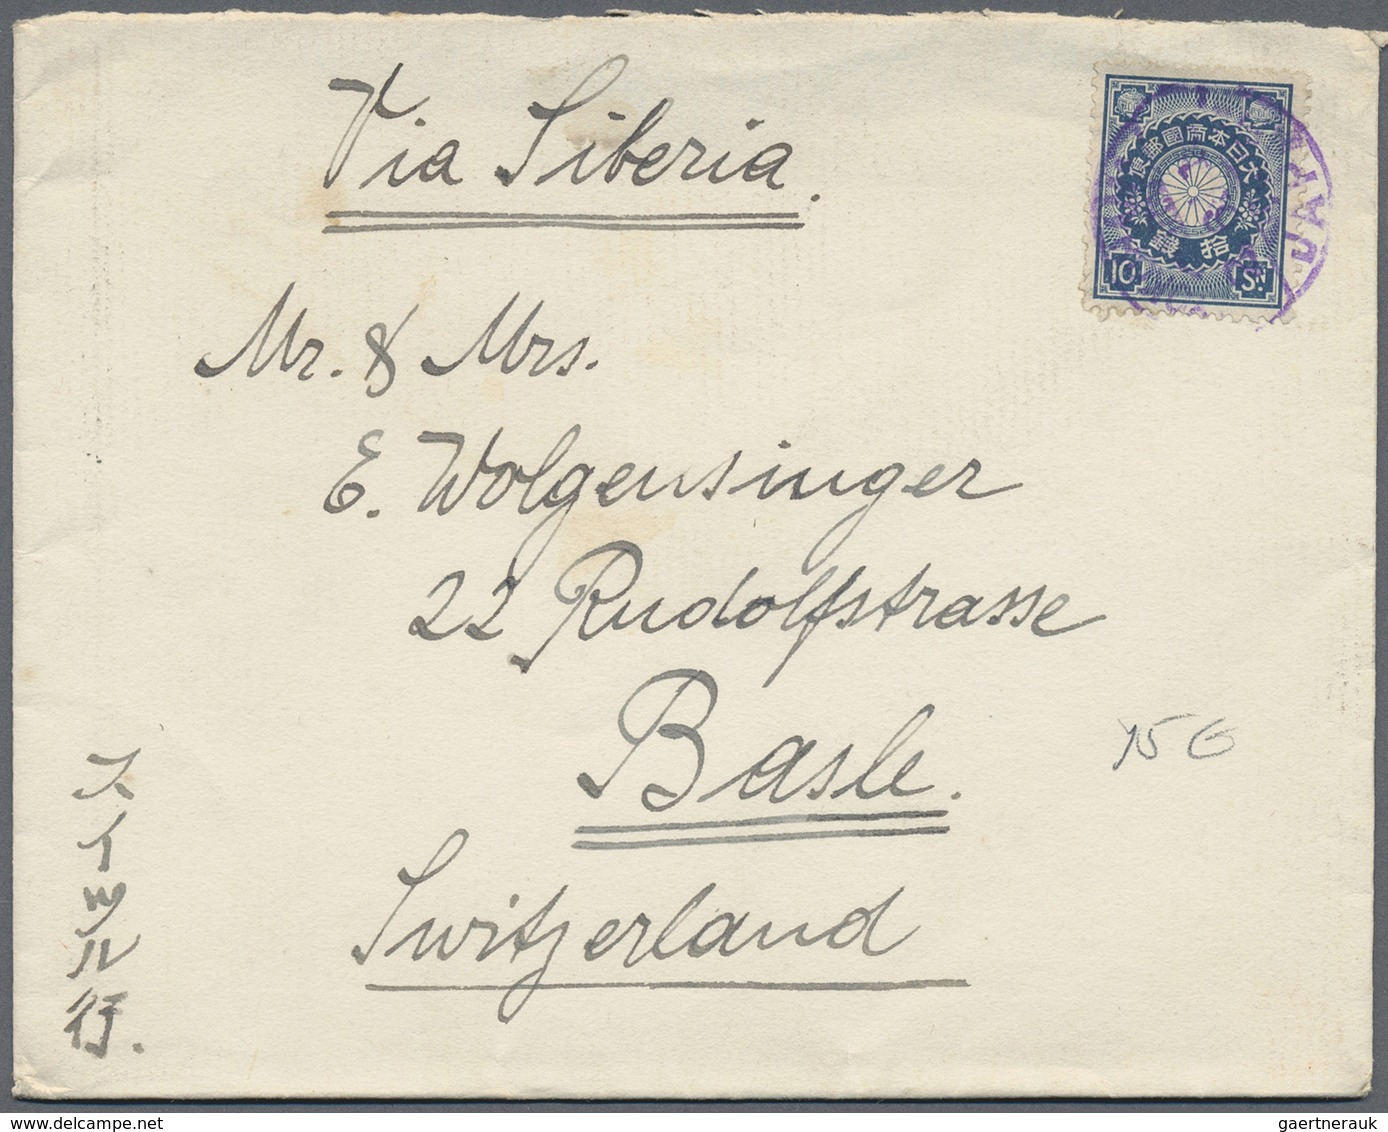 Via Siberia.
大日本帝國郵便
拾錢
10 Sn.
JAPAN
Mr. & Mrs.
E. Wolgensinger
22 Rudolfstrasse
Basle.
Switzerland
スイツル行.
gaertnerauk
www.delcampe.net